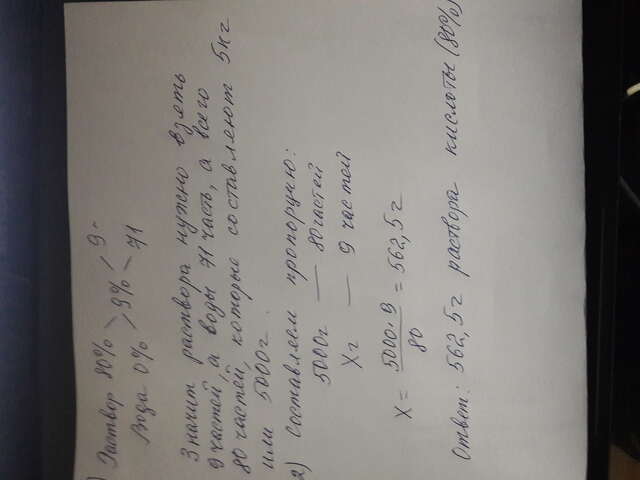 ) Раствор 80% 9
9%
Вода 0% 71
Значит раствора нужно взять
9 частей, а воды 71 часть, а всего
80 частей, которые составляют 5кг
или 5000г.
2) Составляем пропорцию:
5000г — 80 частей
Xг — 9 частей
X = 5000·9 / 80 = 562,5г
Ответ: 562,5г раствора кислоты (80%)